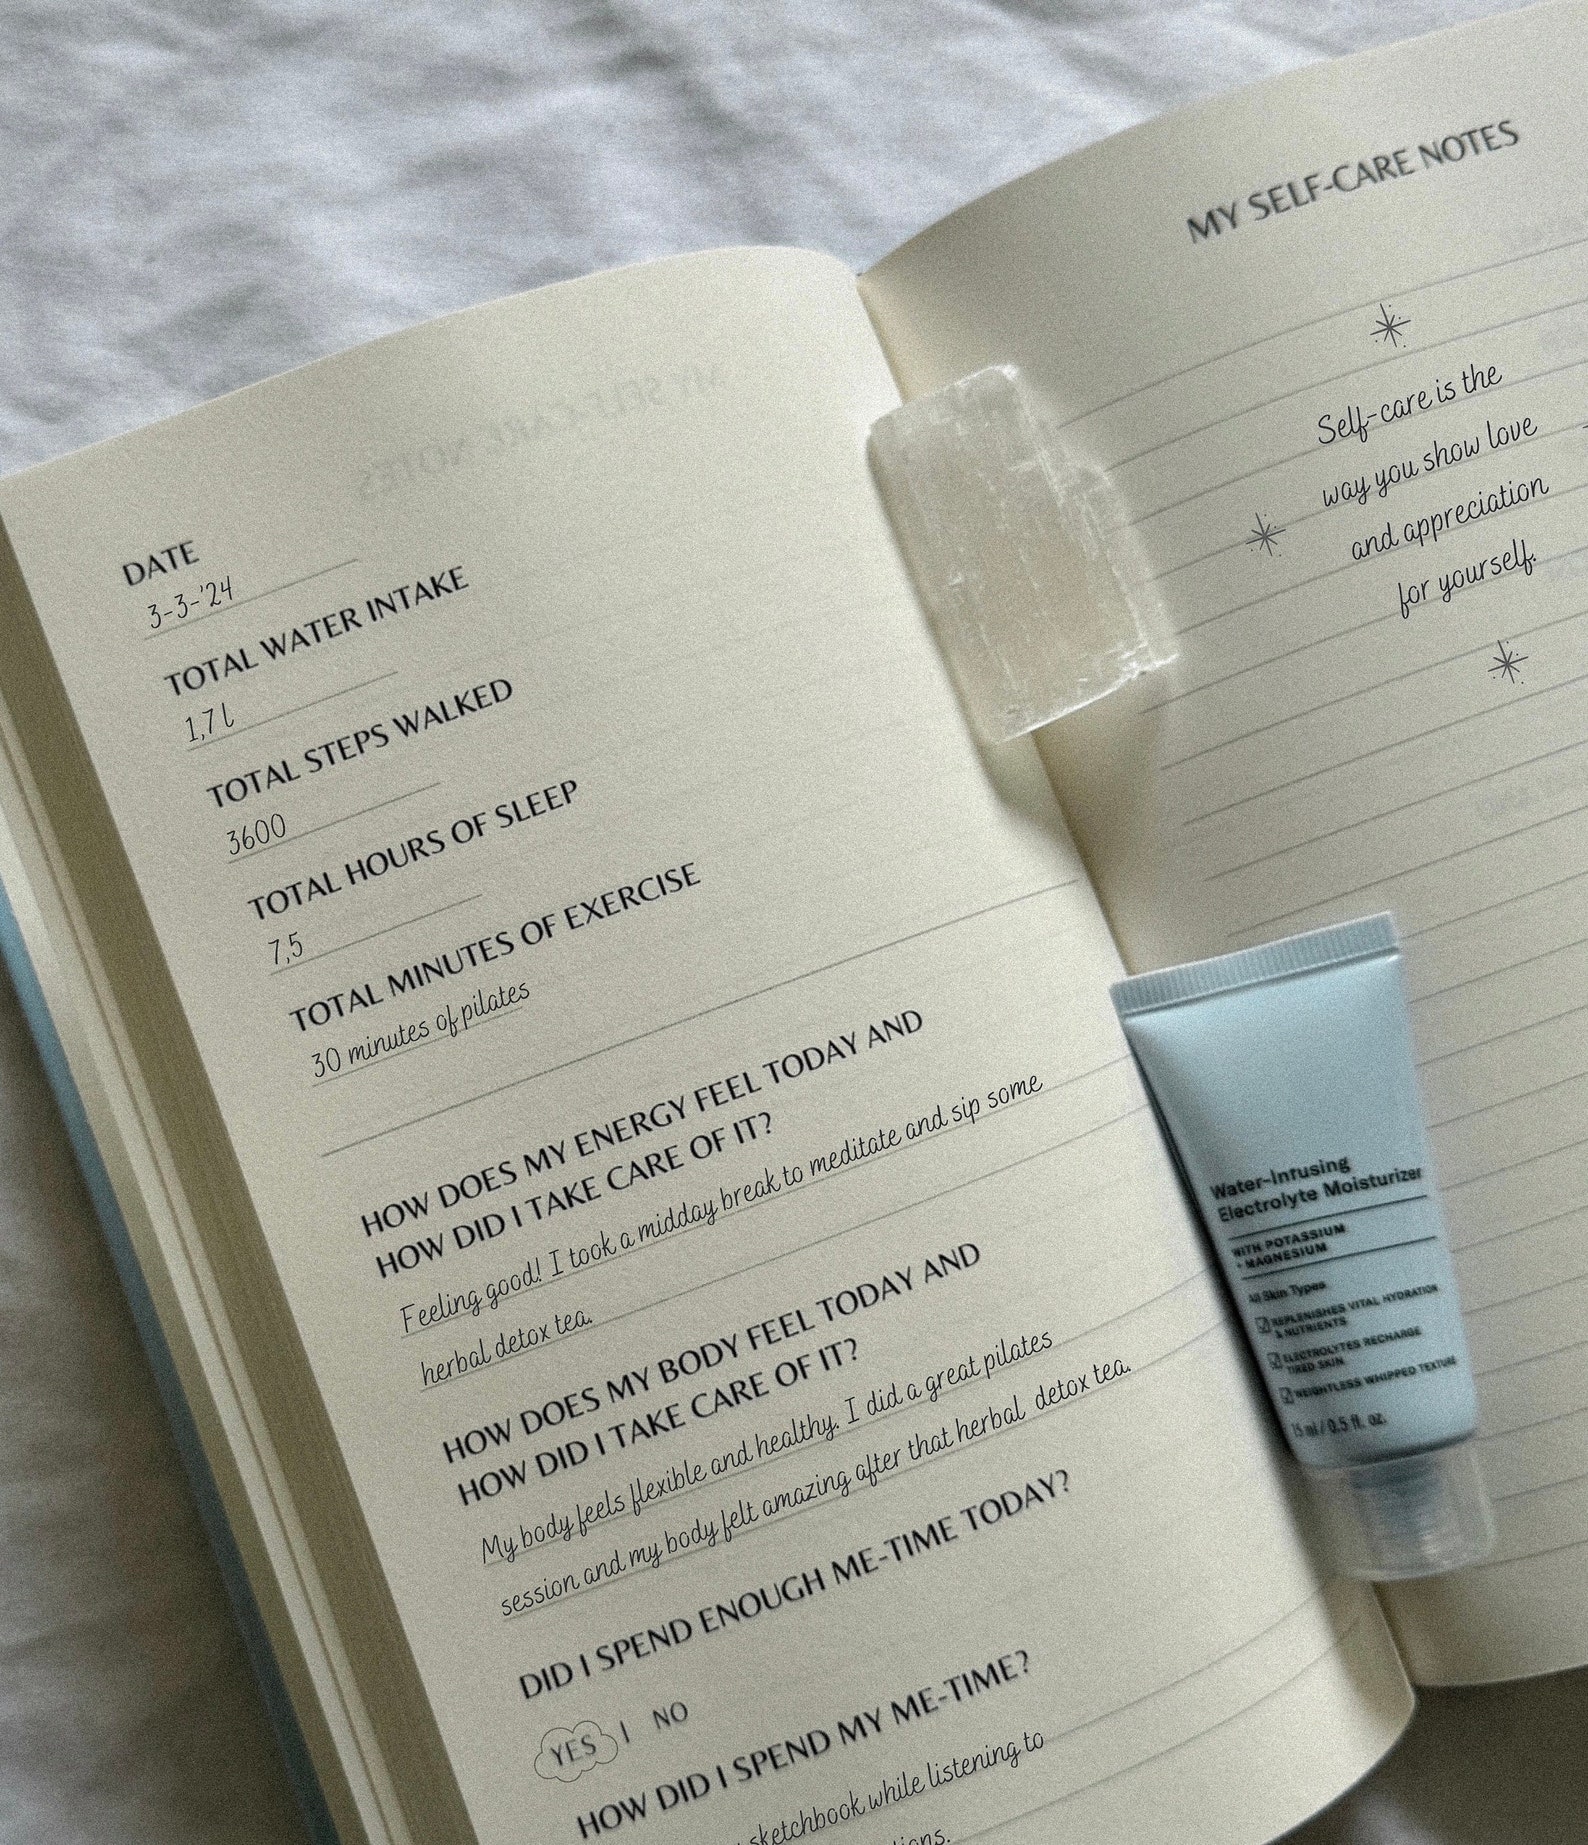 DATE
3-3-'24
TOTAL WATER INTAKE
1,7 l
TOTAL STEPS WALKED
3600
TOTAL HOURS OF SLEEP
7,5
TOTAL MINUTES OF EXERCISE
30 minutes of pilates
HOW DOES MY ENERGY FEEL TODAY AND
HOW DID I TAKE CARE OF IT?
Feeling good! I took a midday break to meditate and sip some
herbal detox tea.
HOW DOES MY BODY FEEL TODAY AND
HOW DID I TAKE CARE OF IT?
My body feels flexible and healthy. I did a great pilates
session and my body felt amazing after that herbal detox tea.
DID I SPEND ENOUGH ME-TIME TODAY?
YES | NO
HOW DID I SPEND MY ME-TIME?
sketchbook while listening to
MY SELF-CARE NOTES
Self-care is the
way you show love
and appreciation
for yourself.
Water-Infusing
Electrolyte Moisturizer
WITH POTASSIUM
+ MAGNESIUM
All Skin Types
REPLENISHES VITAL HYDRATION
& NUTRIENTS
ELECTROLYTES RECHARGE
TIRED SKIN
WEIGHTLESS WHIPPED TEXTURE
15 ml / 0.5 fl. oz.
MY SELF-CARE NOTES